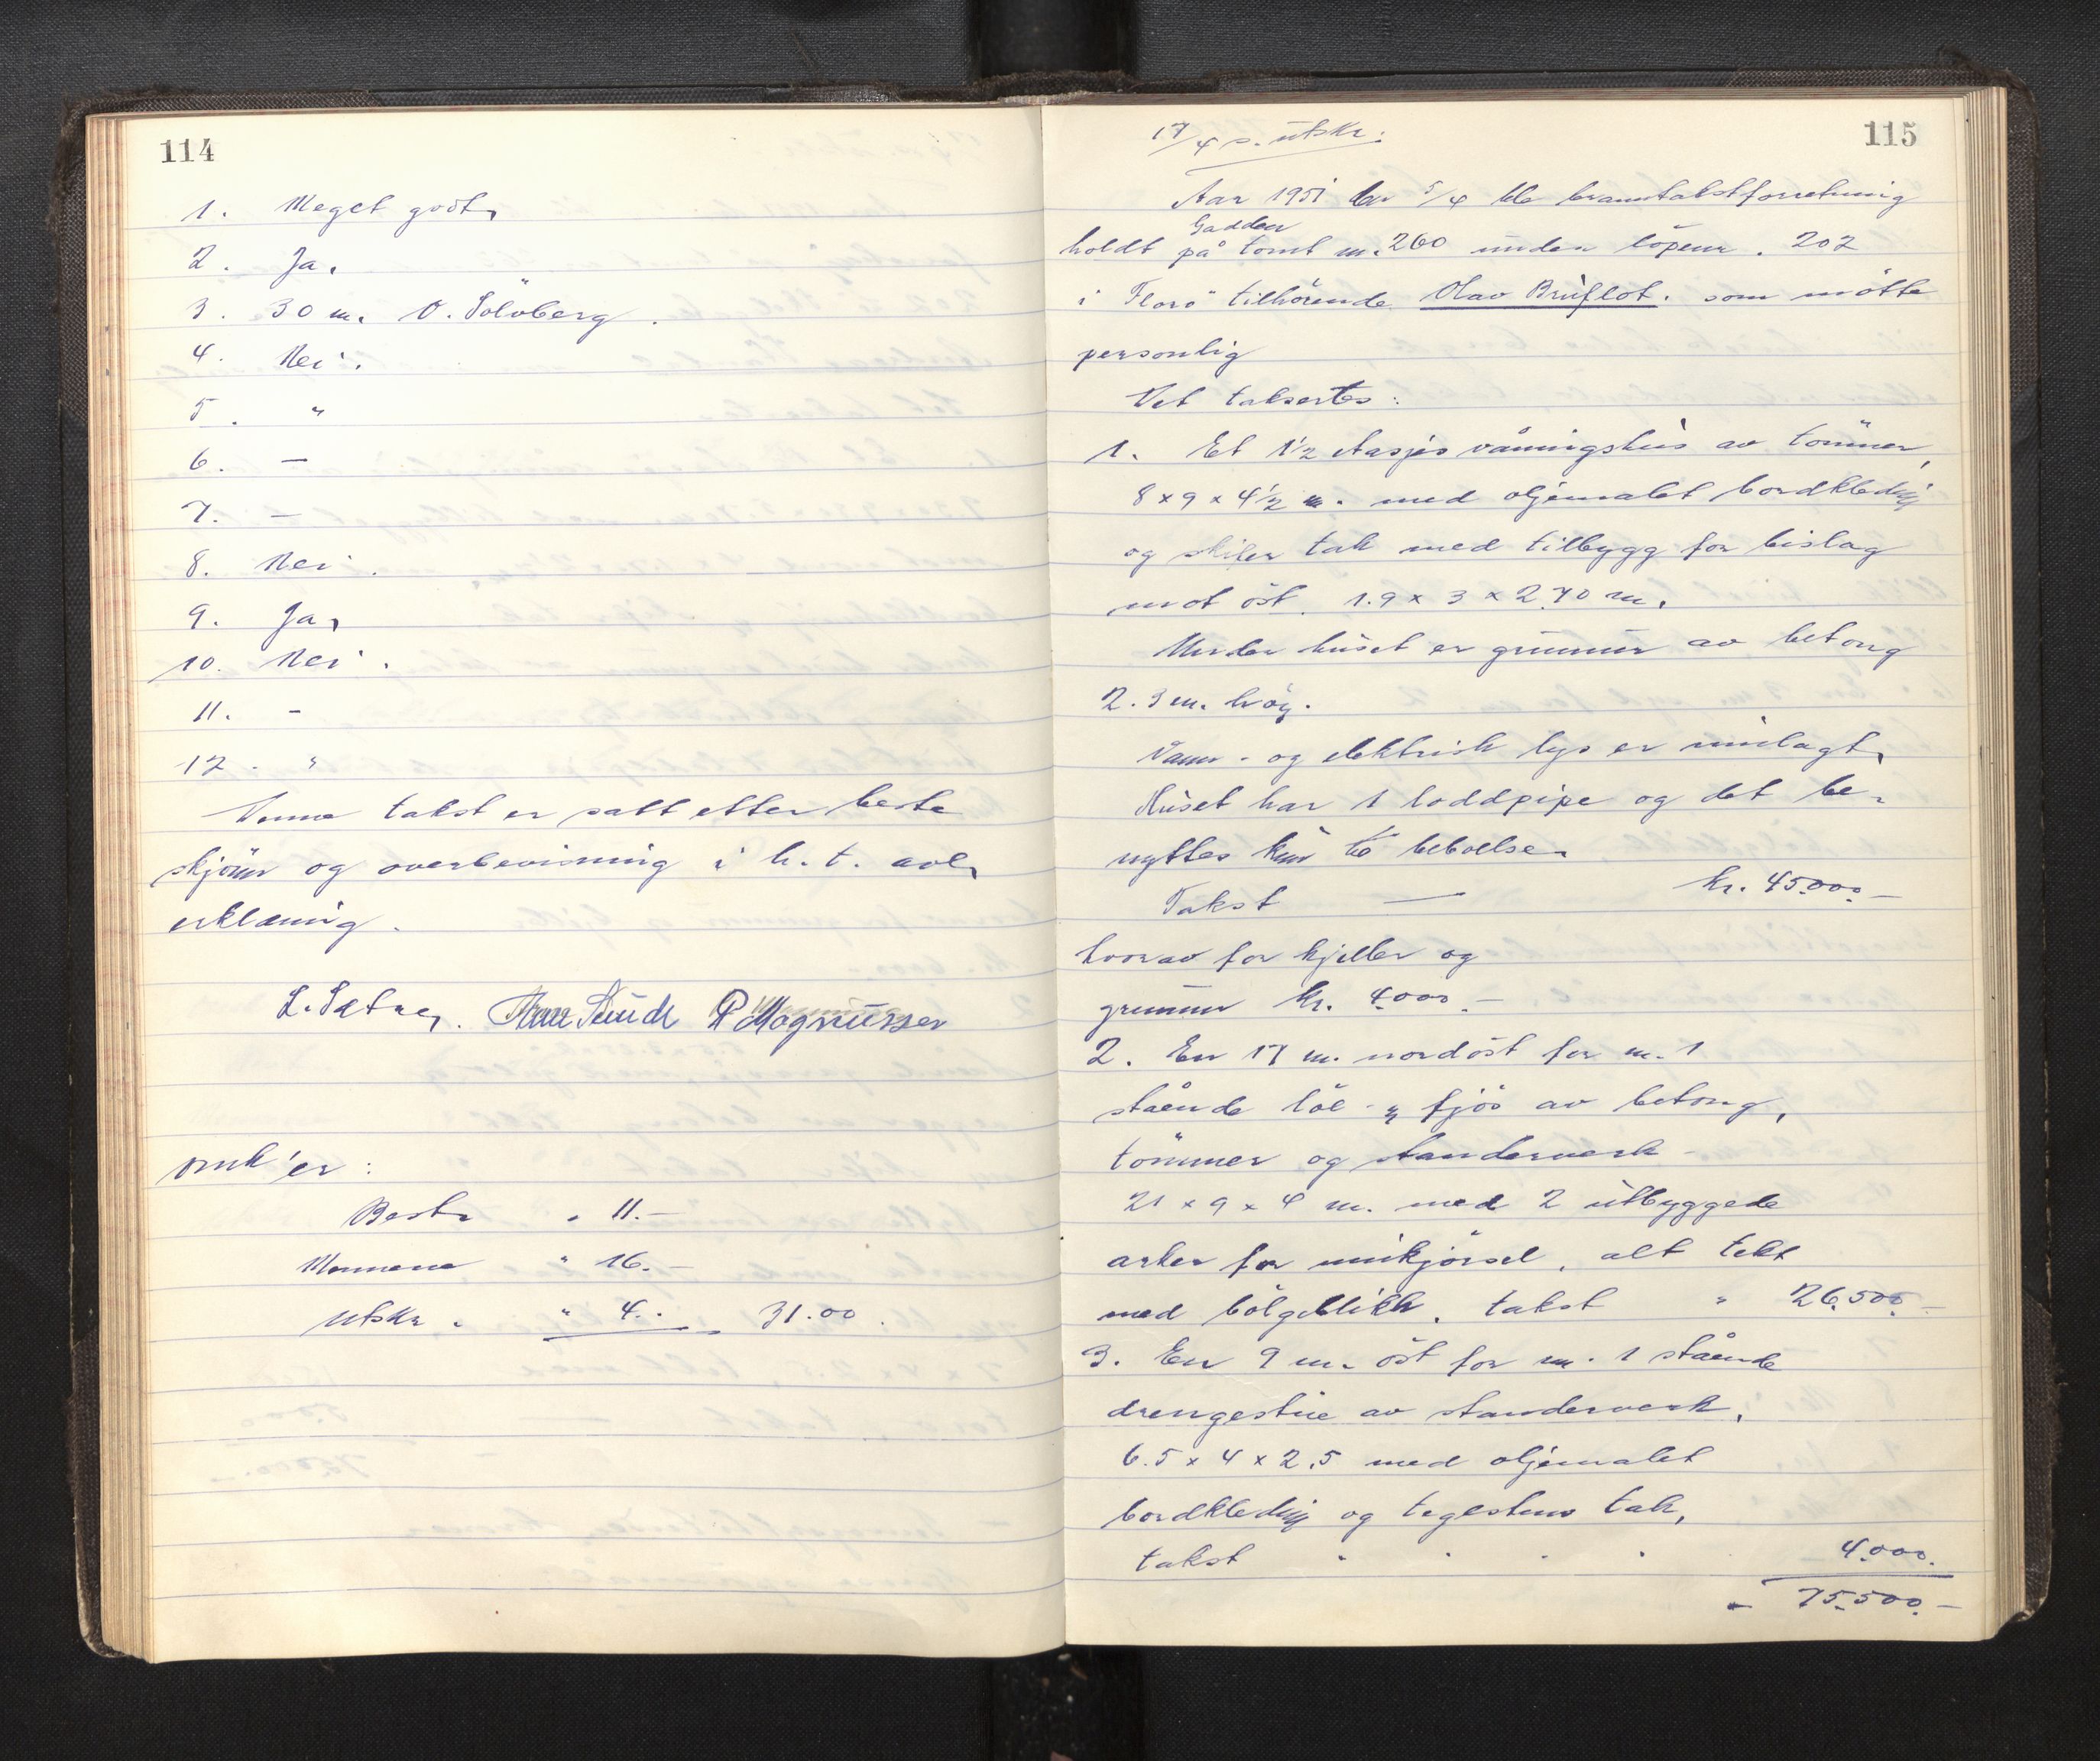 114
1. Meget godt,
2. Ja.
3. 30 m. O. Sölvberg.
4. Nei.
5. "
6. —
7. —
8. Nei.
9. Ja,
10. Nei.
11. -
12. "
Denne takst er satt etter beste
skjönn og overbevisning i h. t. avl.
erklæring.
L. Sætre, Arne Sunde P Magnussen
omk'er:
Best. " 11.—
Mennene " 16.—
Utskr. " 4.- 31.00.
115
17/4 s. utskr.
Aar 1951 den 5/4 ble branntakstforretning
Gadden
holdt på tomt nr. 260 under löpenr. 202
i Florö tilhörende Olav Bruflot. som mötte
personlig
Det taksertes:
1. Et 1½ etasjes våningshus av tömmer,
8 x 9 x 4½ m. med oljemalet bordkledning
og skifer tak med tilbygg for bislag
mot öst. 1.9 x 3 x 2.70 m.
Under huset er grunnmur av betong
2.3 m. höy.
Vann- og elektrisk lys er innlagt,
Huset har 1 loddpipe og det be-
nyttes kun til beboelse.
Takst — kr. 45.000.—
hvorav for kjeller og
grunnmur kr. 4.000.—
2. En 17 m. nordöst for nr. 1
stående löe- og fjös av betong,
tömmer og standerverk
21 x 9 x 4 m. med 2 utbyggede
arker for innkjörsel, alt tekt
med bölgeblikk. takst " 26.500.—
3. En 9 m. öst for nr. 1 stående
drengestue av standerverk,
6.5 x 4 x 2.5 med oljemalet
bordkledning og teglstens tak,
takst " " " " 4.000.
- 75.500.—